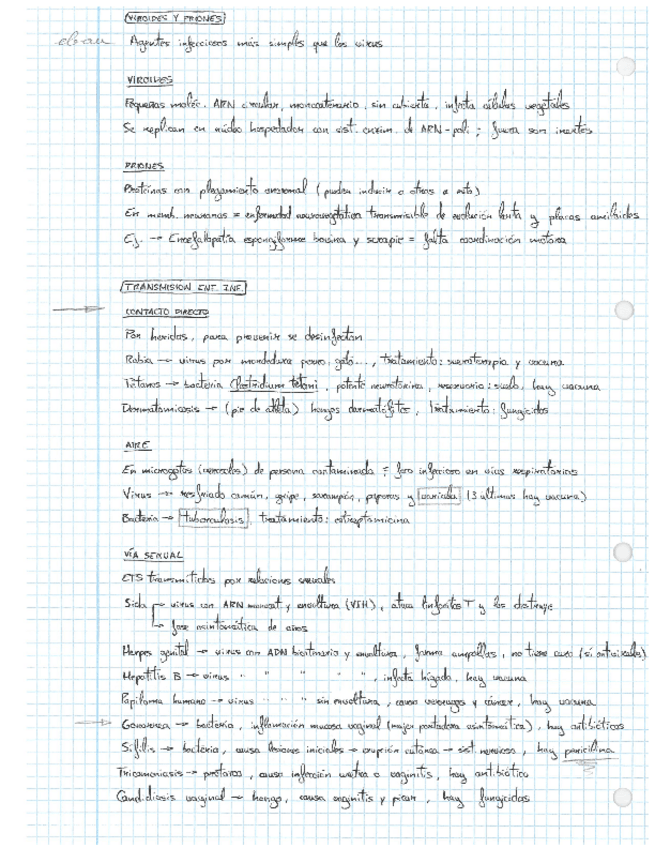 VIROIDES Y PRIONES
Agentes infecciosos más simples que los virus
VIROIDES
Pequeñas moléc. ARN circular, monocatenario, sin cubierta, infecta células vegetales
Se replican en núcleo hospedador con sist. enzim. de ARN-poli ; fuera son inertes
PRIONES
Proteínas con plegamiento anormal (pueden inducir a otras a esto)
En memb. neuronas = enfermedad neurovegetativa transmisible de evolución lenta y placas amiloides
Ej. → Encefalopatía espongiforme bovina y scrapie = falta coordinación motora
TRANSMISION ENF. INF.
CONTACTO DIRECTO
Por heridas, para prevenir se desinfectan
Rabia → virus por mordedura perro, gato..., tratamiento: sueroterapia y vacuna
Tétanos → bacteria Clostridium tetani, potente neurotoxina, reservorio: suelo, hay vacuna
Dermatomicosis → (pie de atleta) hongos dermatófitos, tratamiento: fungicidas
AIRE
En microgotas (aerosoles) de persona contaminada = foco infeccioso en vías respiratorias
Virus → resfriado común, gripe, sarampión, paperas y varicela (3 últimas hay vacuna)
Bacteria → tuberculosis, tratamiento: estreptomicina
VÍA SEXUAL
ETS transmitidas por relaciones sexuales
Sida → virus con ARN monocat. y envoltura (VIH), ataca linfocitos T y los destruye
↳ fase asintomática de años
Herpes genital → virus con ADN bicatenario y envoltura, forma ampollas, no tiene cura (sí antivirales)
Hepatitis B → virus " " " " ", infecta hígado, hay vacuna
Papiloma humano → virus " " " sin envoltura, causa verrugas y cáncer, hay vacuna
Gonorrea → bacteria, inflamación mucosa vaginal (mujer portadora asintomática), hay antibióticos
Sífilis → bacteria, causa lesiones iniciales → erupción cutánea → sist. nervioso, hay penicilina
Tricomoniasis → protozoo, causa infección uretra o vaginitis, hay antibiótico
Candidiasis vaginal → hongo, causa vaginitis y picor, hay fungicidas